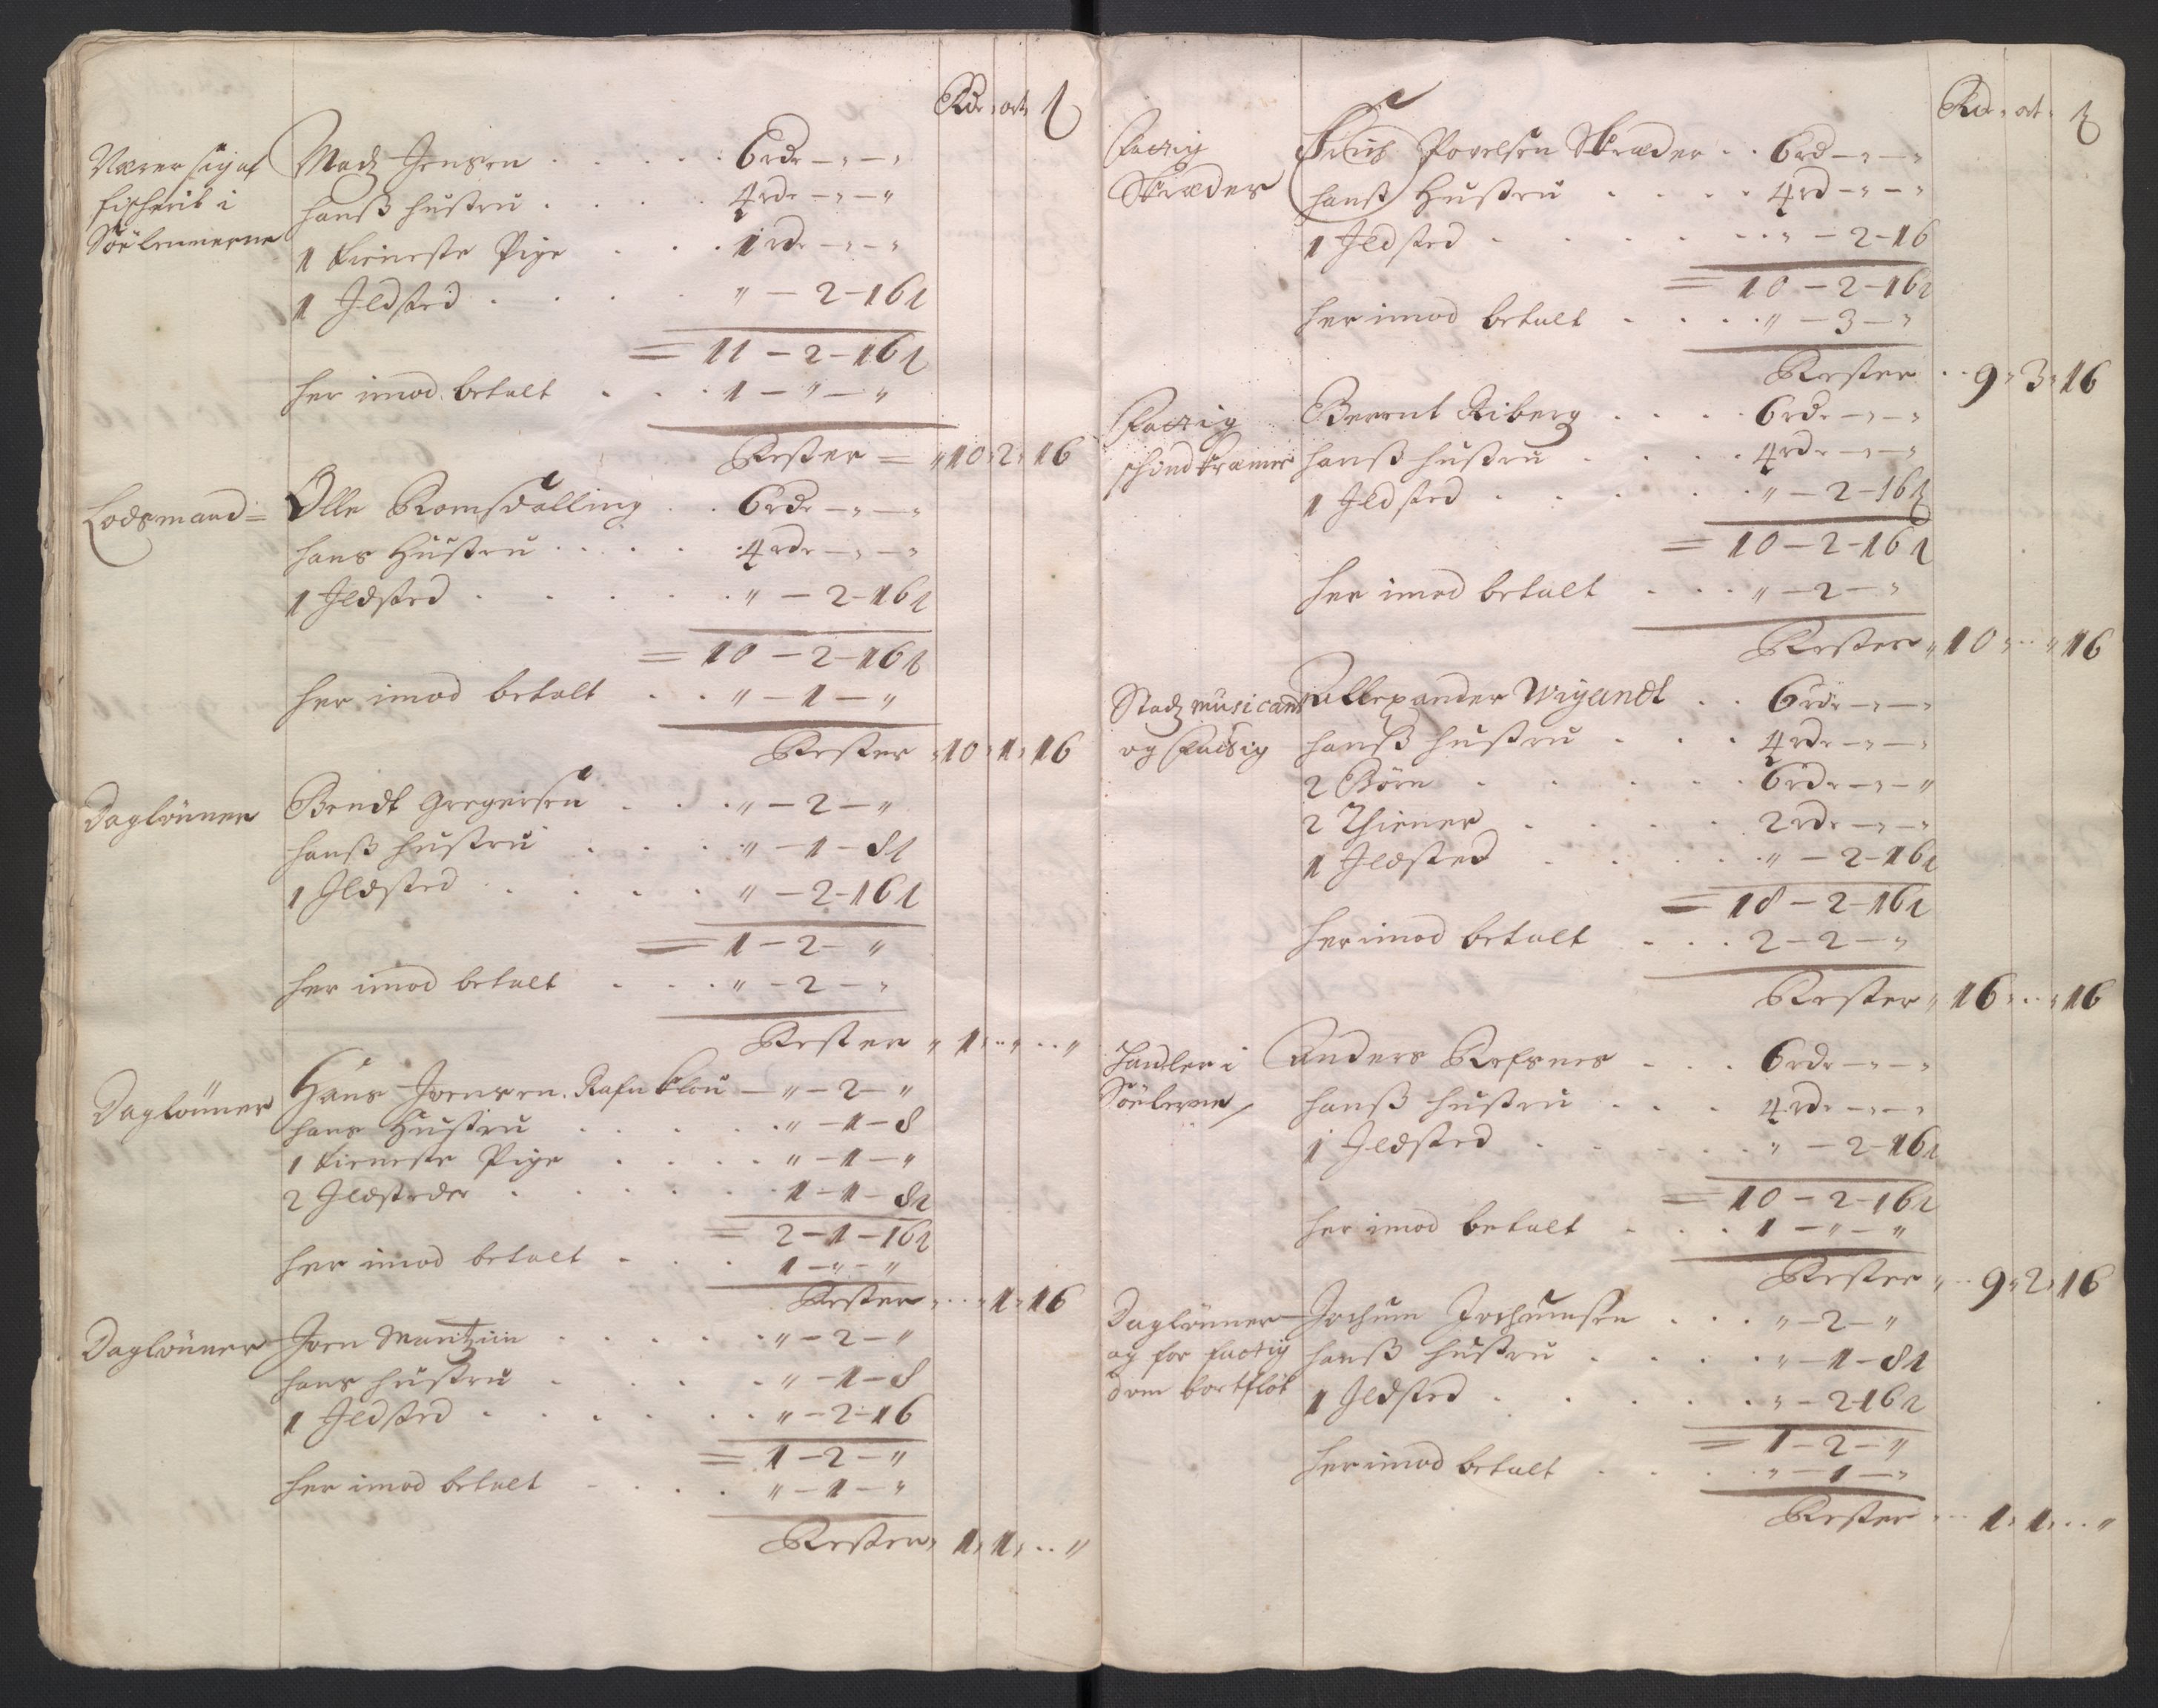 Rdr ort ß
Nærer sig af
fischerit i
Söelemerne
Madz Jensen . . . . 6 rdr - " - "
hanß hustru . . . . 4 rdr - " - "
1 tieneste Pige . . . 1 rdr - " - "
1 Jldsted . . . . " - 2 - 16 ß
= 11 - 2 - 16 ß
her imod betalt . . . 1 - " - "
Rester = " 10 " 2 " 16
Lodsmand =
Olle Romsdalling . . 6 rdr - " - "
hans Hustru . . . . 4 rdr - " - "
1 Jldsted . . . . " - 2 - 16 ß
= 10 - 2 - 16 ß
her imod betalt . . . " - 1 - "
Rester " 10 " 1 " 16
Daglönner
Bendt Gregersen . . . " - 2 - "
hanß hustru . . . . " - 1 - 8 ß
1 Jldsted . . . . " - 2 - 16 ß
= 1 - 2 - "
her imod betalt . . . " - 2 - "
Rester " 1 " .. " .. "
Daglönner
Hans Joensen Rafn Klou - " - 2 - "
hans Hustru . . . . " - 1 - 8
1 tieneste Pige . . . . " - 1 - "
2 Jldsteder . . . . 1 - 1 - 8 ß
= 2 - 1 - 16 ß
her imod betalt . . . 1 - " - "
Rester " .. " 1 " 16
Daglönner
Joen Muritziin . . . . " - 2 - "
hans hustru . . . . " - 1 - 8
1 Jldsted . . . . " - 2 - 16
= 1 - 2 - "
her imod betalt . . . " - 1 - "
Rester " 1 " 1 " .. "
Rdr ort ß
Fattig
Skræder
Povelsen Skræder . . 6 rd - " - "
hanß Hustru . . . . 4 rd - " - "
1 Jldsted . . . . " - 2 - 16
= 10 - 2 - 16 ß
her imod betalt . . . " - 3 - "
Rester . . 9 " 3 " 16
Fattig
schindkræmer
Berent Riberg . . . . 6 rdr - " - "
hanß hustru . . . . 4 rdr - " - "
1 Jldsted . . . . " - 2 - 16 ß
= 10 - 2 - 16 ß
her imod betalt . . . " - 2 - "
Rester " 10 " .. " 16
Stadz musicant
og Fattig
Allexander Wigandt . . 6 rdr - " - "
hanß hustru . . . 4 rdr - " - "
2 Börn . . . . 6 rdr - " - "
2 Thiener . . . . 2 rdr - " - "
1 Jldsted . . . . " - 2 - 16 ß
= 18 - 2 - 16 ß
her imod betalt . . . 2 - 2 - "
Rester " 16 " .. " 16
Handler i
Söelerne
Anders Refsnes . . . 6 rdr - " - "
hanß hustru . . . 4 rdr - " - "
1 Jldsted . . . . " - 2 - 16 ß
= 10 - 2 - 16 ß
her imod betalt . . . 1 - " - "
Rester " .. 9 " 2 " 16
Daglönner
og for fattig
dom bortfløt
Jochum Jochumsen . . . " - 2 - "
hanß hustru . . . . " - 1 - 8 ß
1 Jldsted . . . . " - 2 - 16 ß
= 1 - 2 - "
her imod betalt . . . " - 1 - "
Rester " .. 1 " 1 " .. "